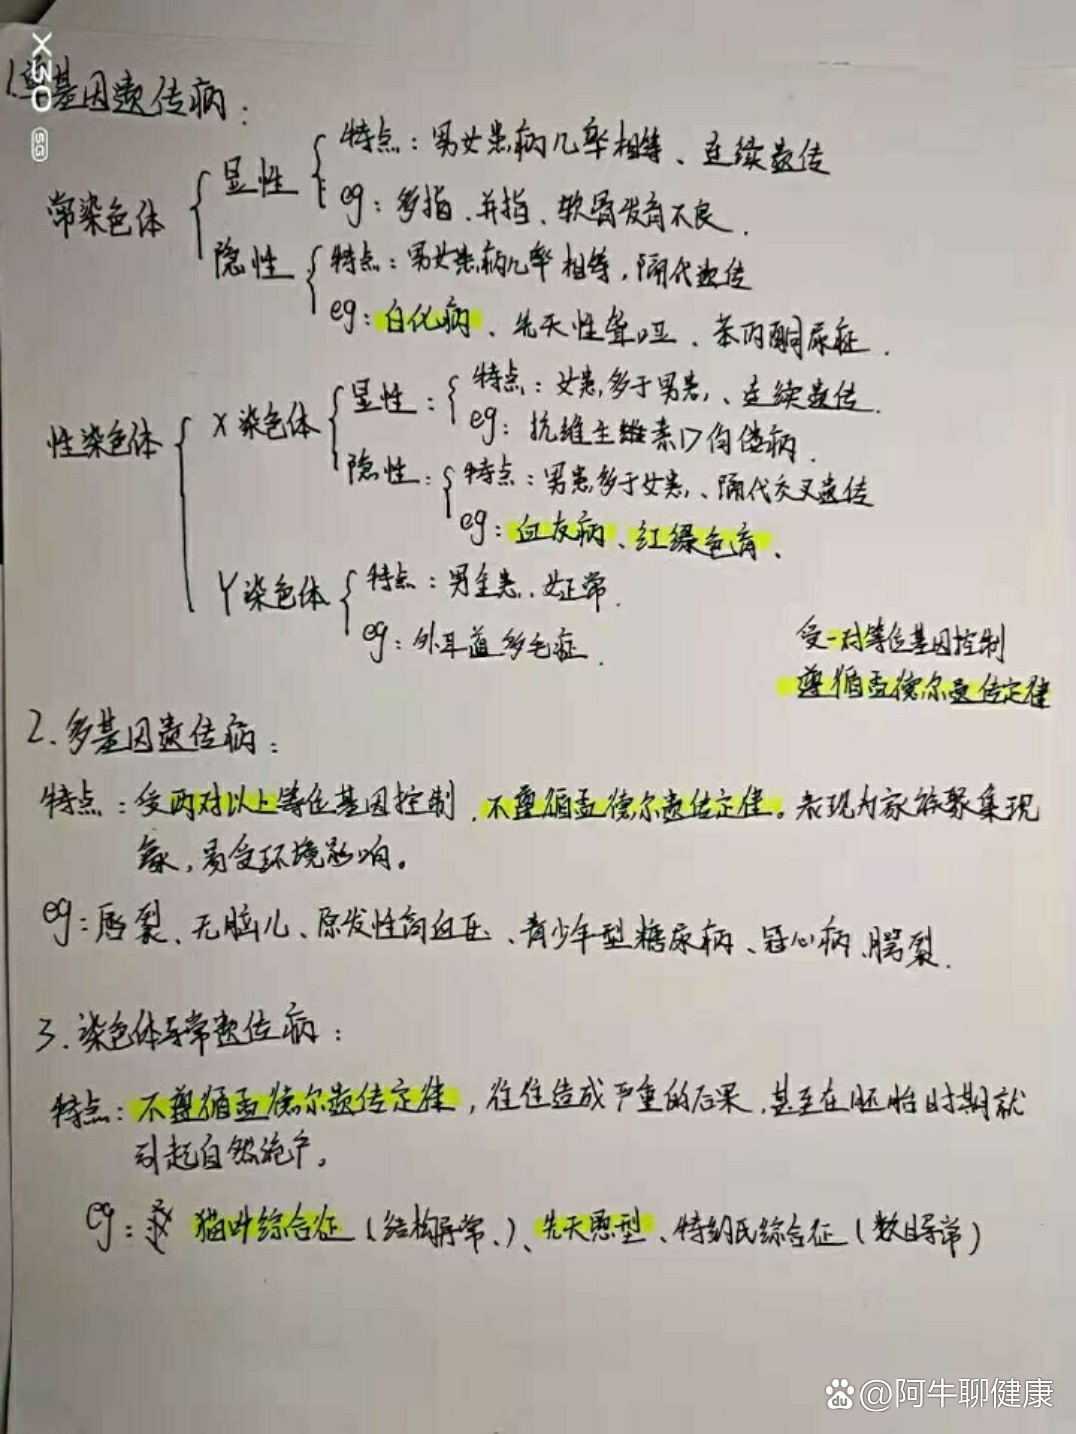 X30
5G
1.单基因遗传病：
常染色体
显性
特点：男女患病几率相等、连续遗传
eg：多指、并指、软骨发育不良.
隐性
特点：男女患病几率相等，隔代遗传
eg：白化病、先天性聋哑、苯丙酮尿症.
性染色体
X染色体
显性：
特点：女患多于男患、连续遗传.
eg：抗维生素D佝偻病.
隐性：
特点：男患多于女患、隔代交叉遗传
eg：血友病、红绿色盲、
Y染色体
特点：男全患、女正常.
eg：外耳道多毛症.
受一对等位基因控制
遵循孟德尔遗传定律
2.多基因遗传病：
特点：受两对以上等位基因控制，不遵循孟德尔遗传定律。表现为家族聚集现
象，易受环境影响。
eg：唇裂、无脑儿、原发性高血压、青少年型糖尿病、冠心病、腭裂.
3.染色体异常遗传病：
特点：不遵循孟德尔遗传定律，往往造成严重的后果，甚至在胚胎时期就
引起自然流产。
eg：猫叫综合征（结构异常、）、先天愚型、特纳氏综合征（数目异常）
@阿牛聊健康